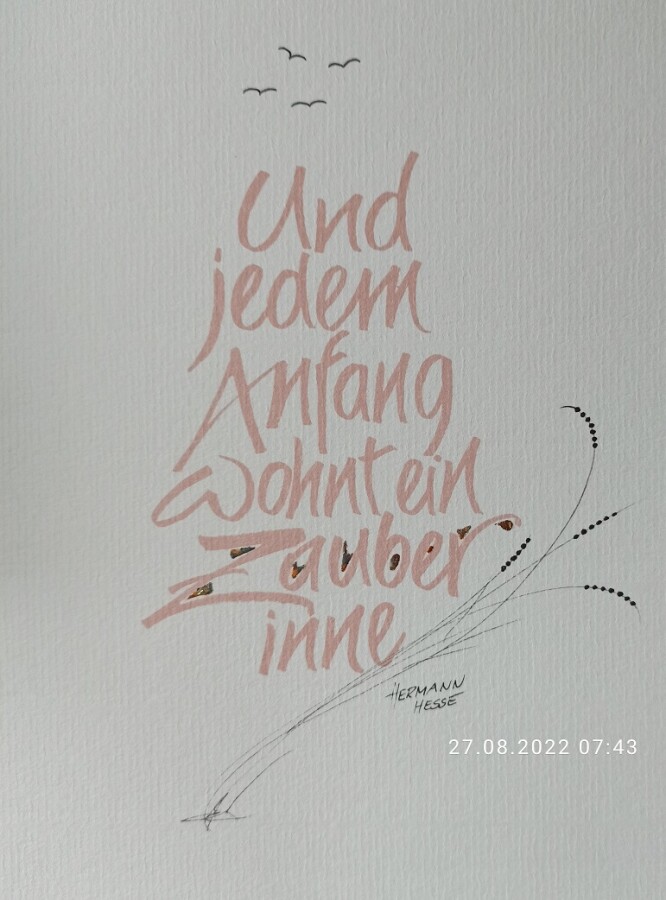 Und
jedem
Anfang
wohnt ein
Zauber
inne
HERMANN
HESSE
27.08.2022 07:43